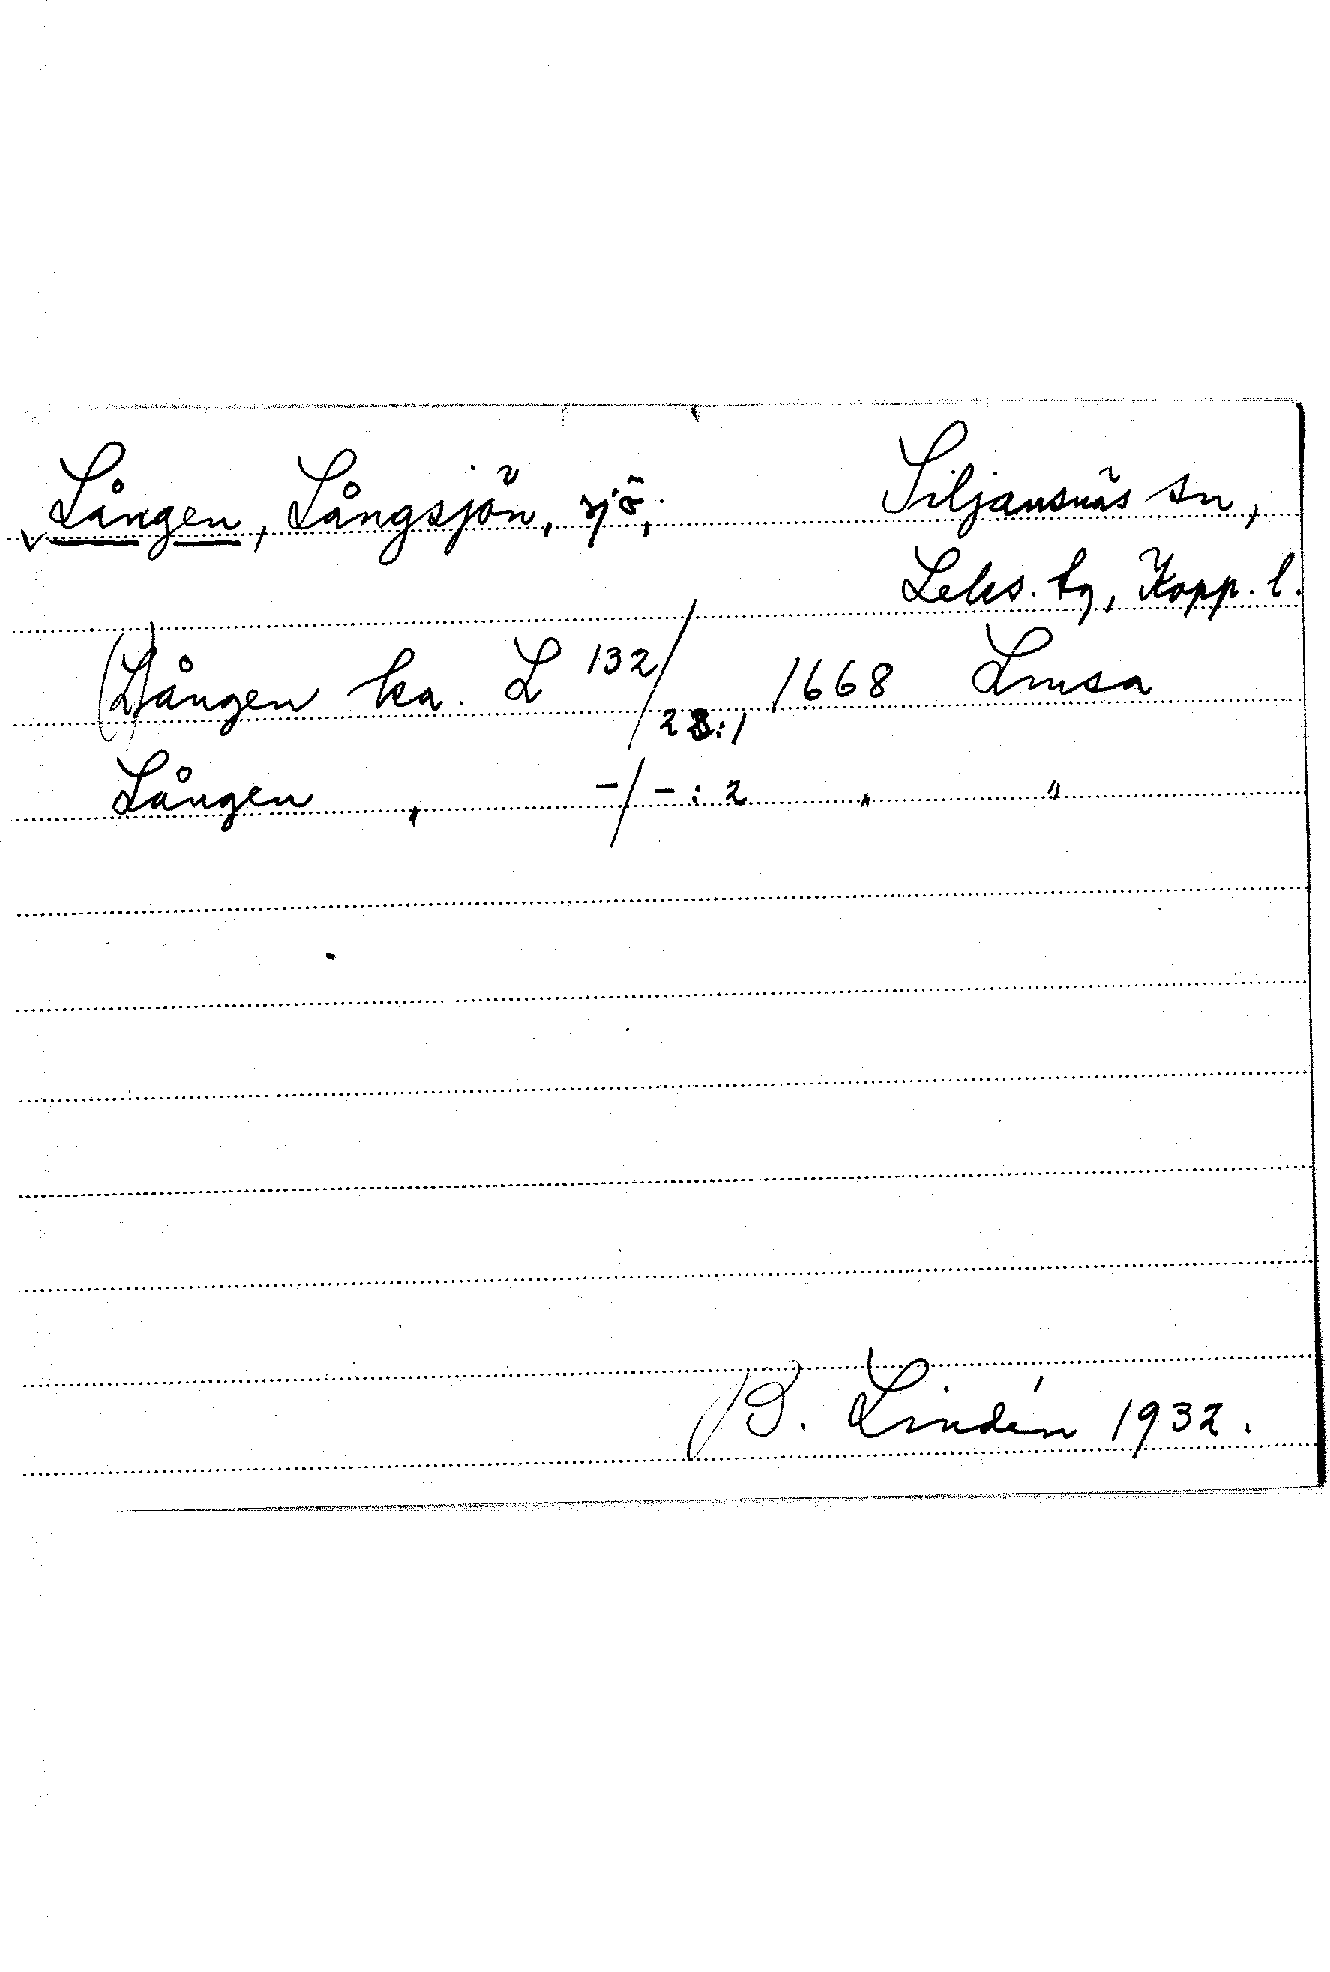 v Lången, Långsjön, sjö, Siljansnäs sn,
Leks. tg, Kopp. l.
(L)ången ka. L 132/28:1 1668 Lmsa
Lången " -/-:2 " "
B. Lindén 1932.